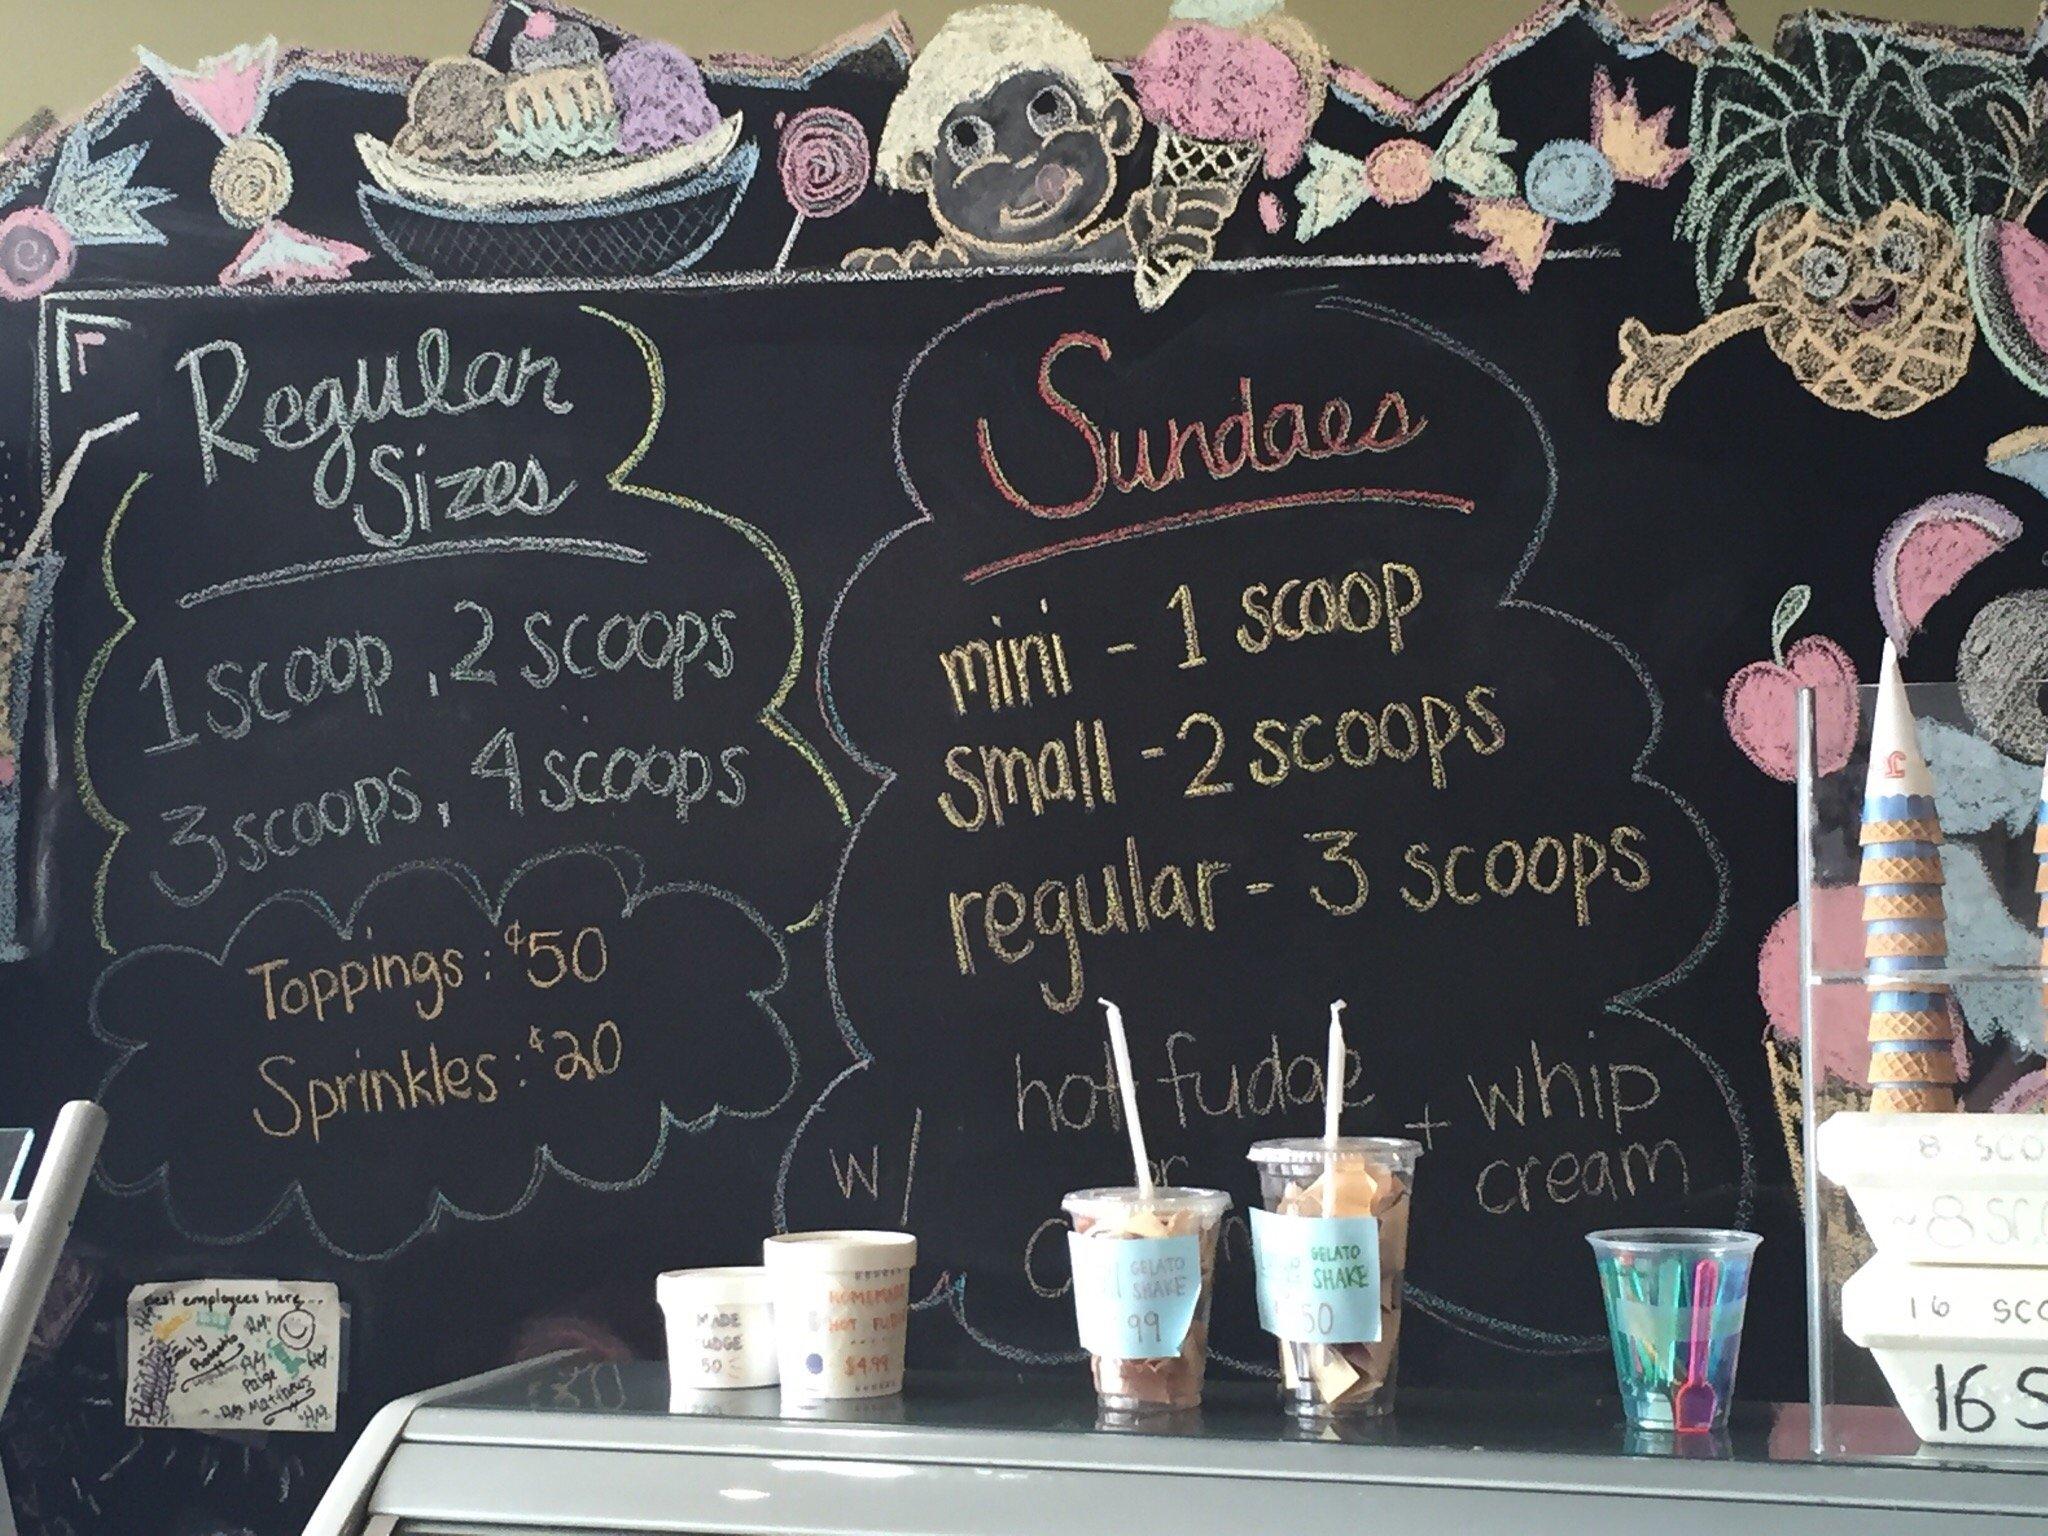 Regular
Sizes
1 scoop, 2 scoops
3 scoops, 4 scoops
Toppings: ¢50
Sprinkles: ¢20
Sundaes
mini - 1 scoop
small - 2 scoops
regular - 3 scoops
w/ hot fudge + whip
or cream
MADE
50
HOMEMADE
HOT FUDGE
$4.99
GELATO
SHAKE
99
GELATO
SHAKE
50
Best employees here...
Emily
Paige
8 SCO
~8 SCO
16 SCO
16 S